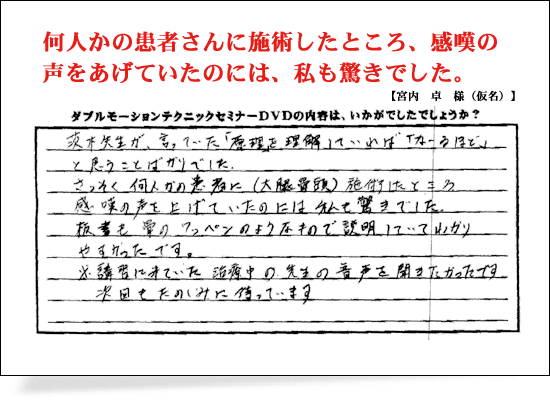 何人かの患者さんに施術したところ、感嘆の
声をあげていたのには、私も驚きでした。
【宮内 卓 様（仮名）】
ダブルモーションテクニックセミナーDVDの内容は、いかがでしたでしょうか？
茨木先生が、言っていた「原理を理解していれば「なーるほど」
と思うことばかりでした。
さっそく何人かの患者に（大腿骨頭）施術したところ
感嘆の声を上げていたのには私も驚きでした。
板書も量のワッペンのようなもので説明していてわかり
やすかったです。
※講習に来ていた治療中の先生の音声を聞きたかったです
次回もたのしみに待っています